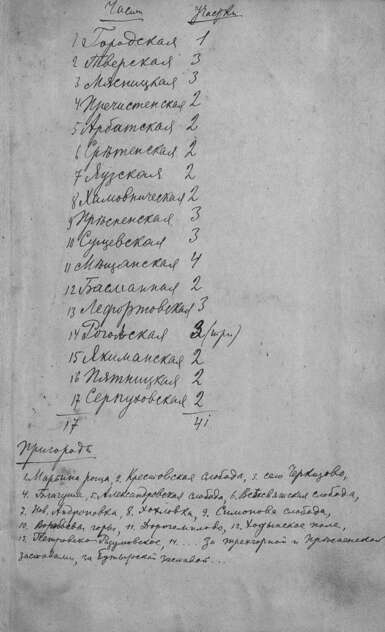 Части Участки
1 Городская 1
2 Тверская 3
3 Мясницкая 3
4 Пречистенская 2
5 Арбатская 2
6 Срѣтенская 2
7 Яузская 2
8 Хамовническая 2
9 Прѣсненская 3
10 Сущевская 3
11 Мѣщанская 4
12 Басманная 2
13 Лефортовская 3
14 Рогожская 3 (три)
15 Якиманская 2
16 Пятницкая 2
17 Серпуховская 2
17 41
Пригородъ
1. Марьина роща, 2. Крестовская слобода, 3. село Черкизово,
4. Благуша, 5. Александровская слобода, 6. Всѣхсвятская слобода,
7. Нов. Андроновка, 8. Хохловка, 9. Симонова слобода,
10. Воробьевы горы, 11. Дорогомилово, 12. Ходынское поле,
13. Петровско-Разумовское, 14. ... За Трехгорной и Прѣсненской
заставами, за Бутырской заставой...